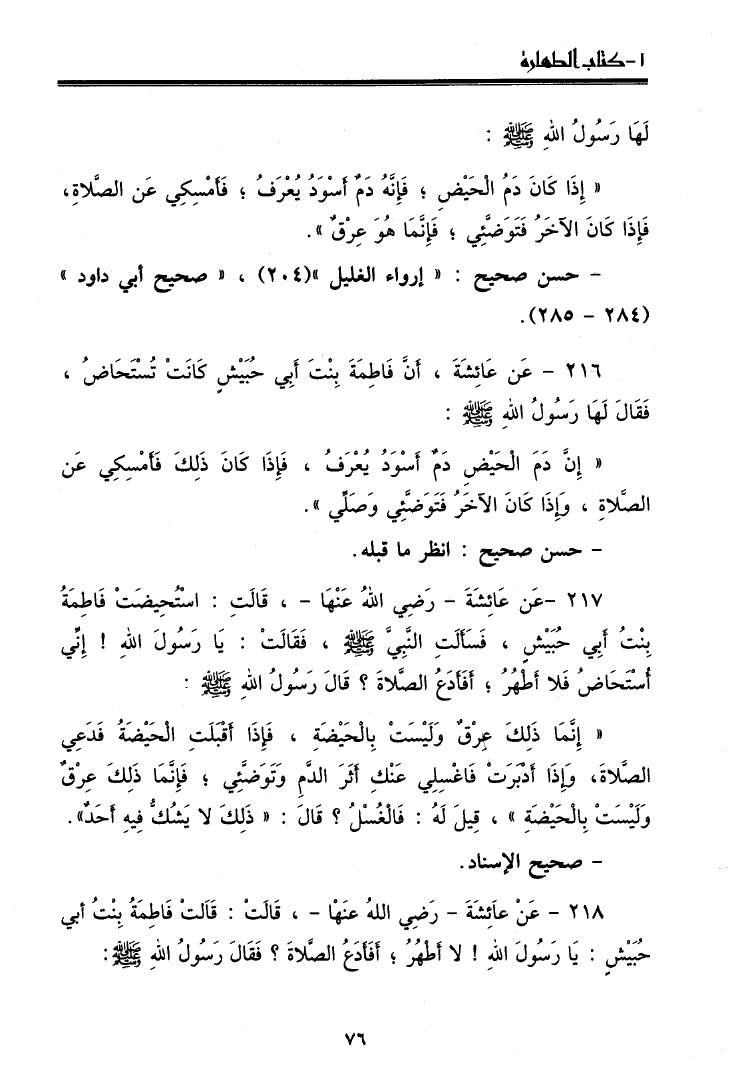 ١-كتاب الطهارة
لَهَا رَسُولُ اللهِ ﷺ :
« إِذَا كَانَ دَمُ الْحَيْضِ ؛ فَإِنَّهُ دَمٌ أَسْوَدُ يُعْرَفُ ؛ فَأَمْسِكِي عَنِ الصَّلَاةِ،
فَإِذَا كَانَ الآخَرُ فَتَوَضَّئِي ؛ فَإِنَّمَا هُوَ عِرْقٌ ».
– حسن صحيح : « إرواء الغليل »(٢٠٤) ، « صحيح أبي داود »
(٢٨٤ – ٢٨٥).
٢١٦ – عَن عَائِشَةَ ، أَنَّ فَاطِمَةَ بِنْتَ أَبِي حُبَيْشٍ كَانَتْ تُسْتَحَاضُ ،
فَقَالَ لَهَا رَسُولُ اللهِ ﷺ :
« إِنَّ دَمَ الْحَيْضِ دَمٌ أَسْوَدُ يُعْرَفُ ، فَإِذَا كَانَ ذَلِكَ فَأَمْسِكِي عَنِ
الصَّلاةِ ، وَإِذَا كَانَ الآخَرُ فَتَوَضَّئِي وَصَلِّي ».
– حسن صحيح : انظر ما قبله.
٢١٧ –عَن عَائِشَةَ – رَضِي اللهُ عَنْهَا – ، قَالَتِ : اسْتُحِيضَتْ فَاطِمَةُ
بِنْتُ أَبِي حُبَيْشٍ ، فَسَأَلَتِ النَّبِيَّ ﷺ ، فَقَالَتْ : يَا رَسُولَ اللهِ ! إِنِّي
أُسْتَحَاضُ فَلا أَطْهُرُ ؛ أَفَأَدَعُ الصَّلاةَ ؟ قَالَ رَسُولُ اللهِ ﷺ :
« إِنَّمَا ذَلِكَ عِرْقٌ وَلَيْسَتْ بِالْحَيْضَةِ ، فَإِذَا أَقْبَلَتِ الْحَيْضَةُ فَدَعِي
الصَّلاةَ، وَإِذَا أَدْبَرَتْ فَاغْسِلِي عَنْكِ أَثَرَ الدَّمِ وَتَوَضَّئِي ؛ فَإِنَّمَا ذَلِكَ عِرْقٌ
وَلَيْسَتْ بِالْحَيْضَةِ » ، قِيلَ لَهُ : فَالْغُسْلُ ؟ قَالَ : « ذَلِكَ لا يَشُكُّ فِيهِ أَحَدٌ».
– صحيح الإسناد.
٢١٨ – عَنْ عَائِشَةَ – رَضِي اللهُ عَنهَا – ، قَالَتْ : قَالَتْ فَاطِمَةُ بِنْتُ أَبِي
حُبَيْشٍ : يَا رَسُولَ اللهِ ! لا أَطْهُرُ ؛ أَفَأَدَعُ الصَّلاةَ ؟ فَقَالَ رَسُولُ اللهِ ﷺ:
٧٦